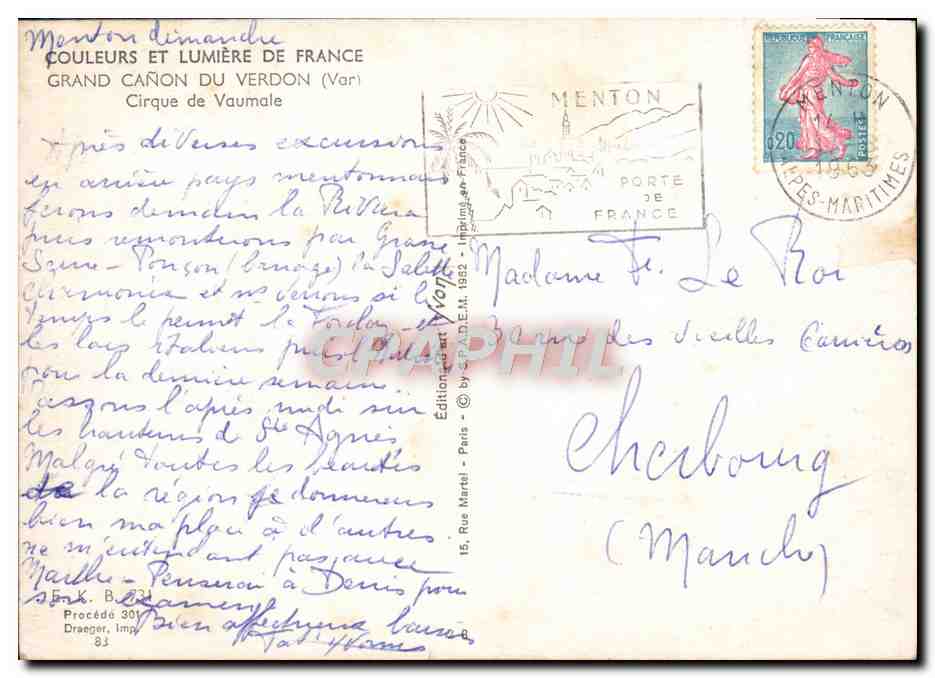 Menton dimanche
COULEURS ET LUMIÈRE DE FRANCE
GRAND CAÑON DU VERDON (Var)
Cirque de Vaumale
Après diverses excursions
en arrière pays mentonnais
ferons demain la Riviera
puis remonterons par Grasse
Ponçon (barrage) la Salette
et ns verrons si le
temps le permet
les lacs italiens
pour la dernière semaine.
l'après midi sur
les hauteurs de Ste Agnès
Malgré toutes les beautés
de la région je donnerais
bien ma place à d'autres
ne m'entendant pas avec
Marthe - Penserai à Denis pour
son examen
Bien affectueux baisers
E. K. B. 731
Procédé 301
Draeger, Imp.
83
8
15, Rue Martel - Paris - © by S.P.A.D.E.M. 1962 - Imprimé en France
Éditions d'art Yvon
MENTON
PORTE
DE
FRANCE
REPUBLIQUE FRANÇAISE
0,20
POSTES
MENTON
1963
ALPES-MARITIMES
Madame F. Le Roi
rue des Vieilles Carrières
Cherbourg
(Manche)
CPAPHIL